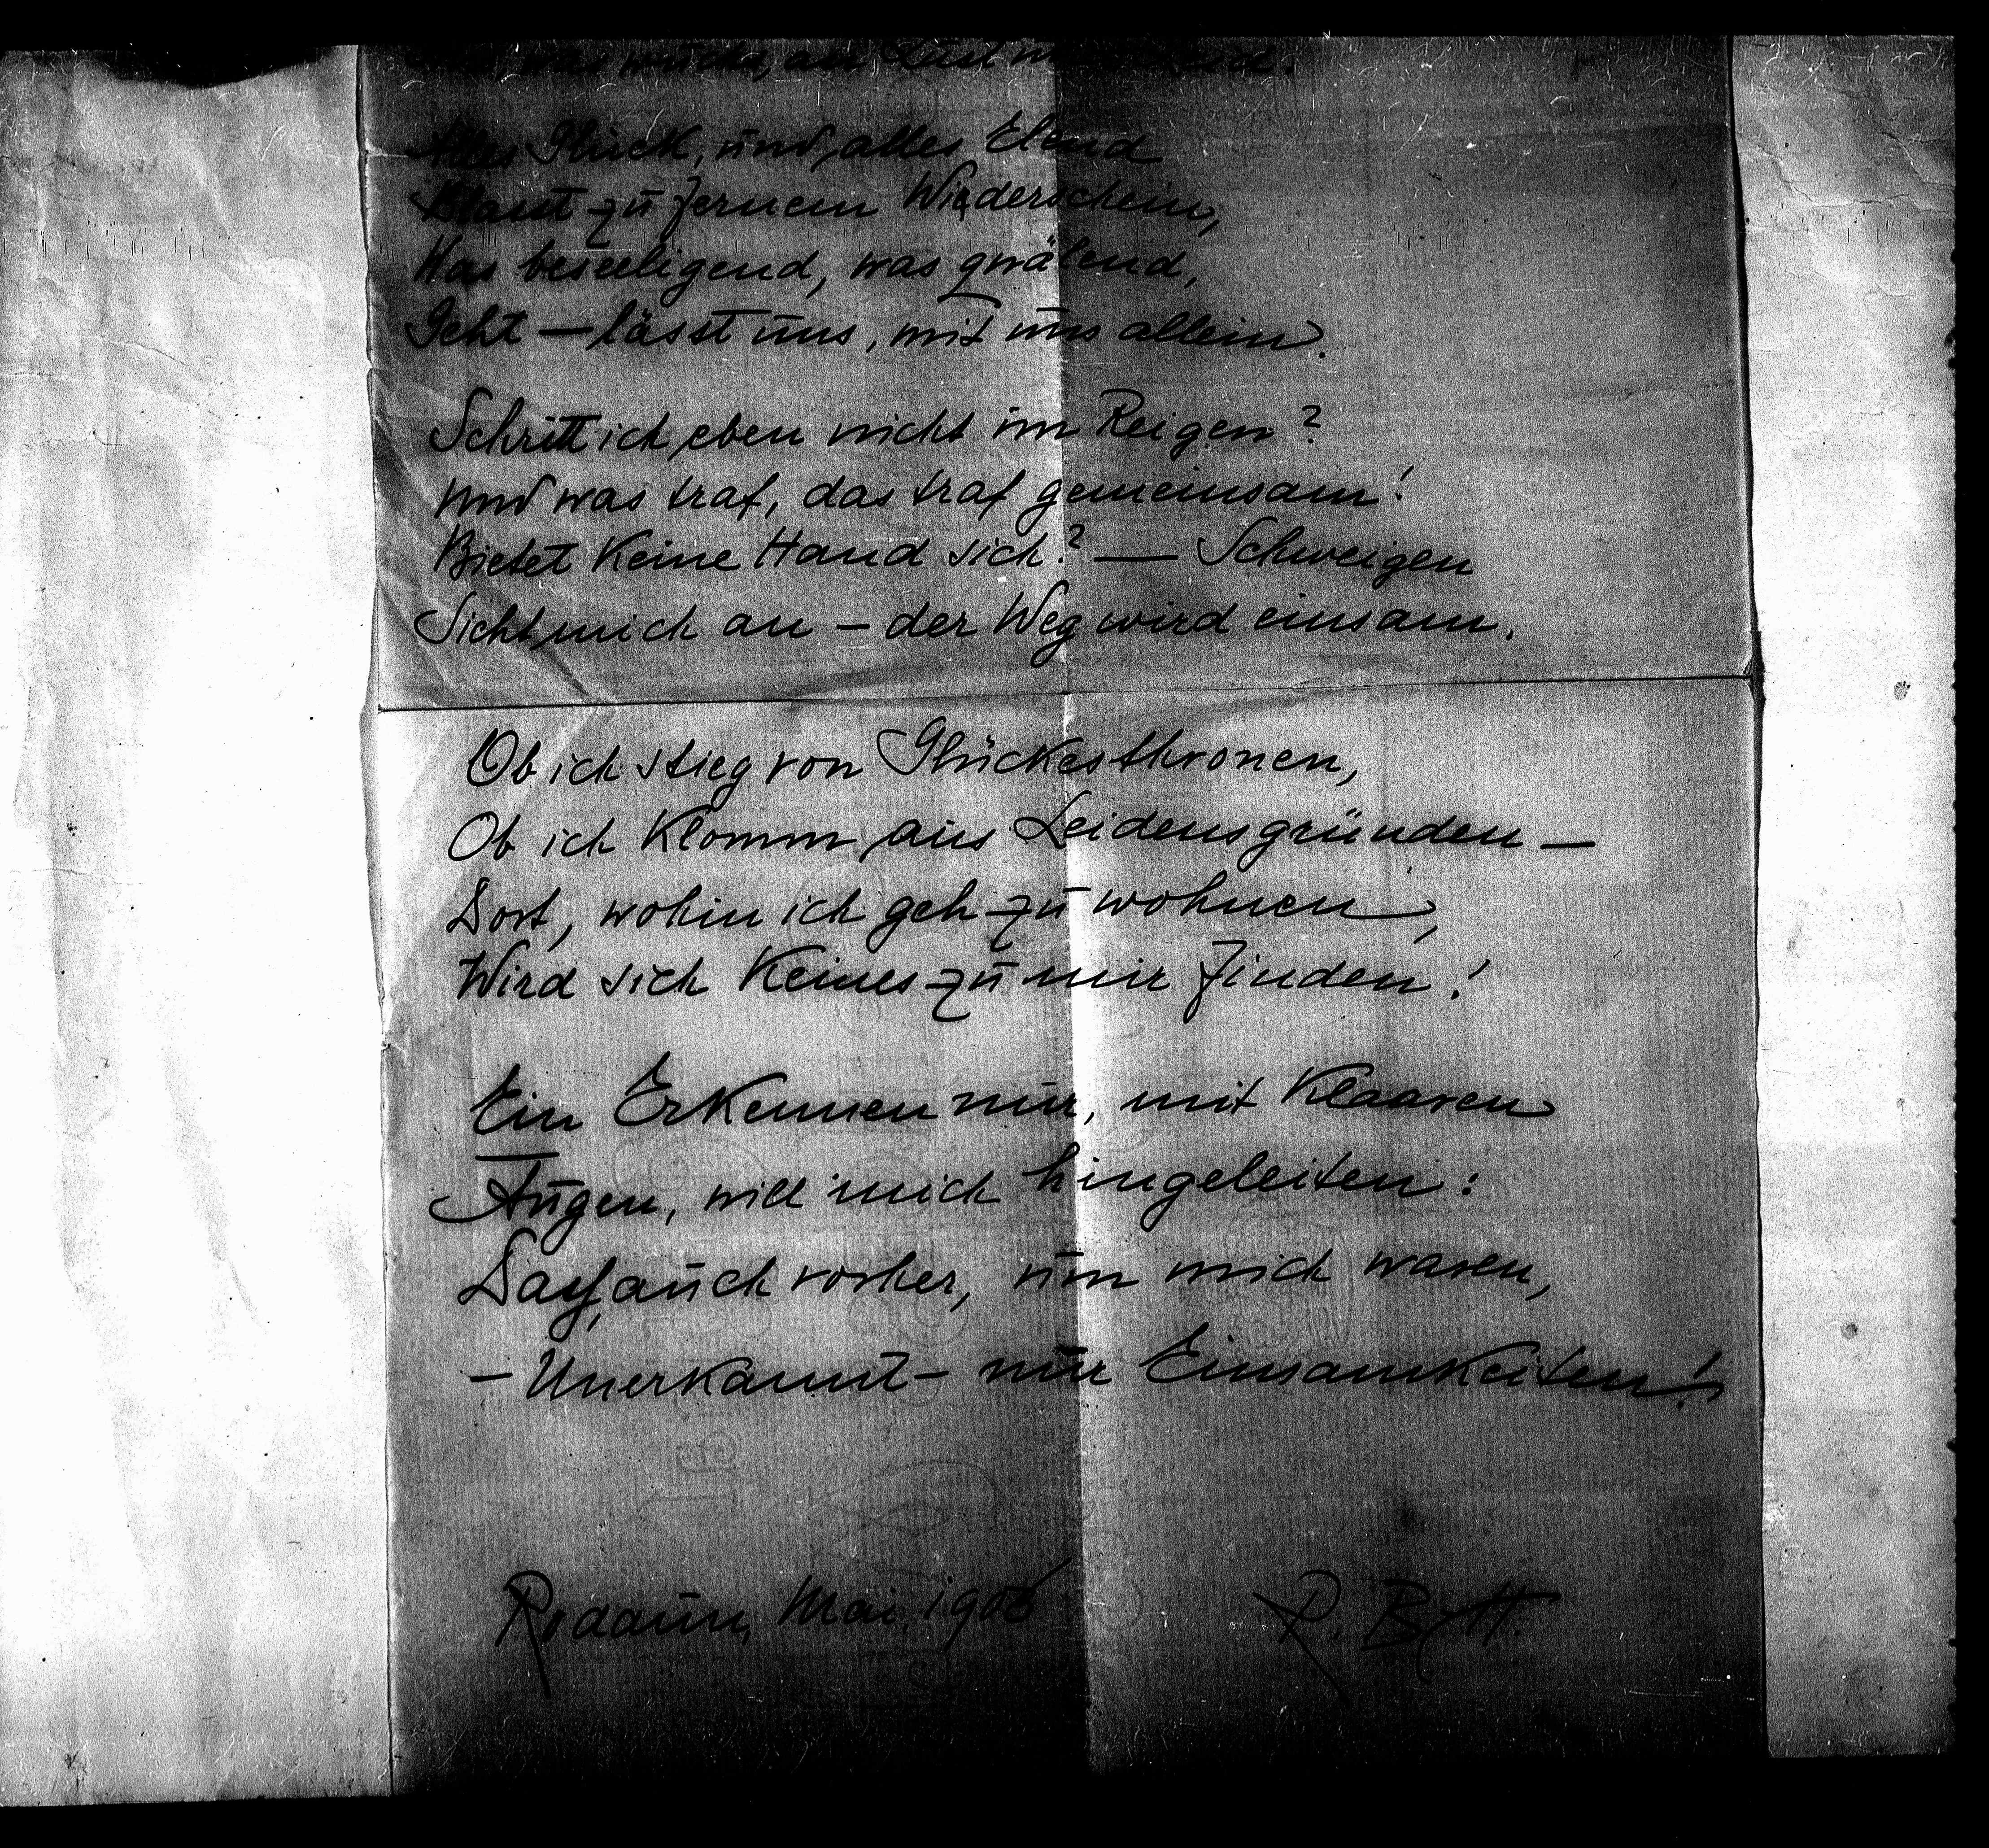 was würde, an Lust
Alles Glück, und, alles Elend
Blasst zu fernem Wiederschein,
Was beseeligend, was quälend,
Geht — lässt uns, mit uns allein.
Schritt ich, eben nicht im Reigen?
Und was traf, das traf gemeinsam!
Bietet Keine Hand sich? — Schweigen
Sieht, mich an — der Weg wird einsam.
Ob ich stieg von Glückesthronen,
Ob ich Klomm, aus Leidensgründen —
Dort, wohin ich geh zu wohnen,
Wird sich Keines zu mir finden!
Ein Erkennen nur, mit Klaaren
Augen, will mich hingeleiten:
Dass, auch vorher, um mich waren,
— Unerkannt — nur Einsamkeiten!
Rodaun, Mai. 1906
R. B-H.